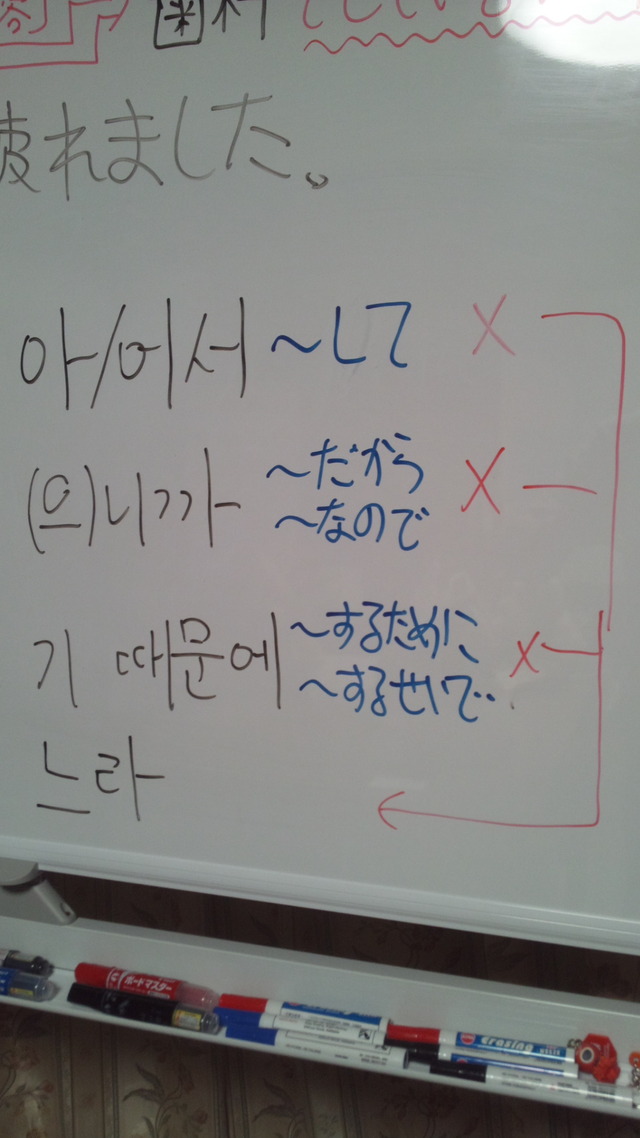 歯科
疲れました。
아/어서 ～して X
(으)니까 ～だから X
～なので
기 때문에 ～するために X
～するせいで..
느라
ボードマスター
Erasing